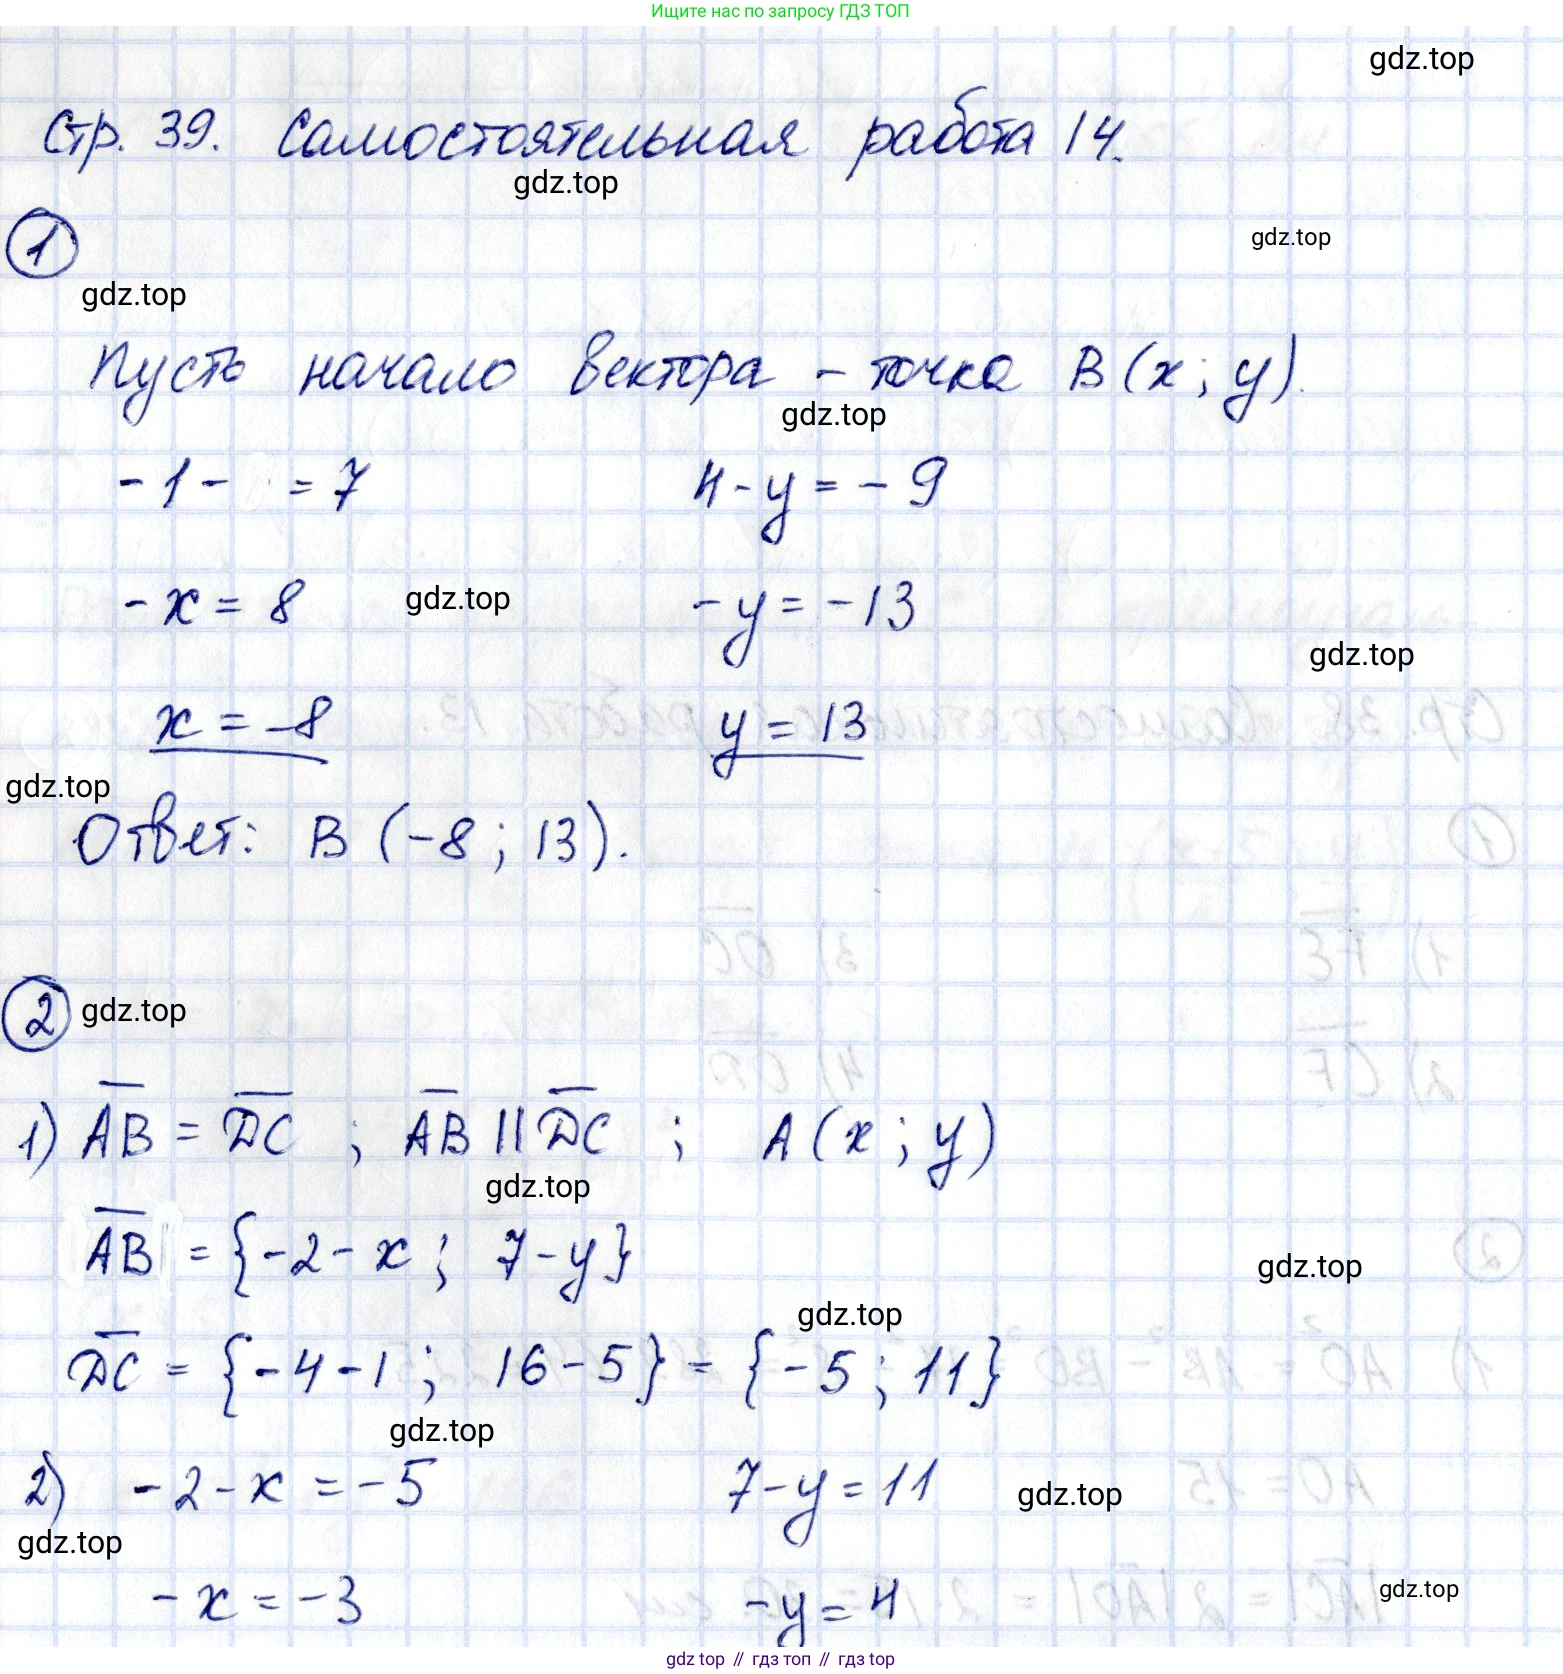 Ищите нас по запросу ГДЗ ТОП
gdz.top
Стр. 39. Самостоятельная работа 14.
gdz.top
1
gdz.top
gdz.top
Пусть начало вектора - точка B(x; y).
gdz.top
-1- = 7 4-y=-9
-x = 8 gdz.top -y=-13
gdz.top
x = -8 y = 13
gdz.top
Ответ: B (-8; 13).
2 gdz.top
1) AB = DC ; AB || DC ; A(x; y)
gdz.top
AB = {-2-x; 7-y}
gdz.top
gdz.top
DC = {-4-1; 16-5} = {-5; 11}
gdz.top
2) -2-x = -5 7-y=11 gdz.top
gdz.top
-x = -3 -y=4 gdz.top
gdz.top // гдз топ // гдз.top